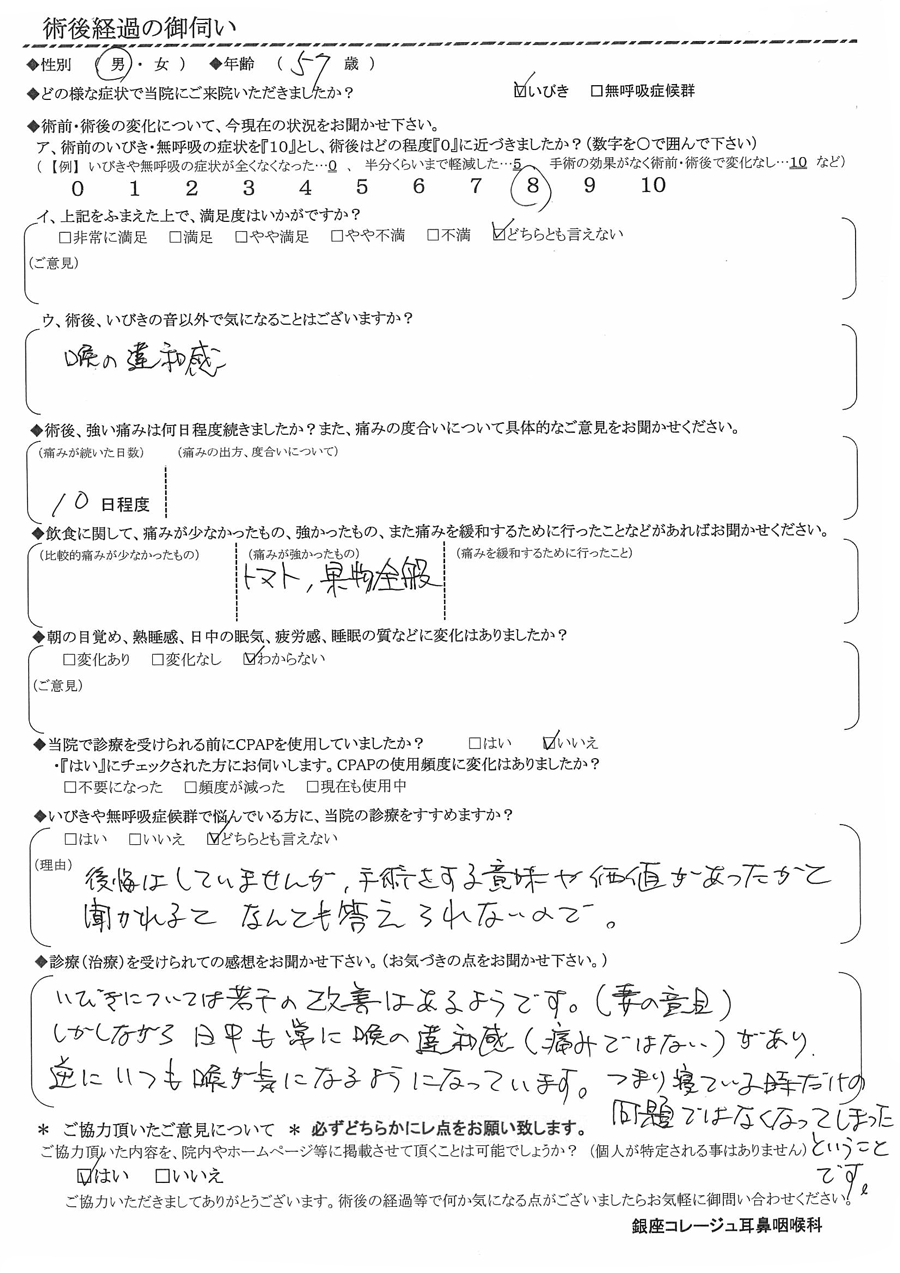 術後経過の御伺い
◆性別 （ 男 ・ 女 ） ◆年齢 （ 57 歳 ）
◆どの様な症状で当院にご来院いただきましたか？ ☑いびき □無呼吸症候群
◆術前・術後の変化について、今現在の状況をお聞かせ下さい。
ア、術前のいびき・無呼吸の症状を『10』とし、術後はどの程度『0』に近づきましたか？（数字を〇で囲んで下さい）
（【例】 いびきや無呼吸の症状が全くなくなった…0 、 半分くらいまで軽減した…5 、 手術の効果がなく術前・術後で変化なし…10 など）
0 1 2 3 4 5 6 7 8 9 10
イ、上記をふまえた上で、満足度はいかがですか？
□非常に満足 □満足 □やや満足 □やや不満 □不満 ☑どちらとも言えない
（ご意見）
ウ、術後、いびきの音以外で気になることはございますか？
喉の違和感
◆術後、強い痛みは何日程度続きましたか？また、痛みの度合いについて具体的なご意見をお聞かせください。
（痛みが続いた日数） （痛みの出方、度合いについて）
10 日程度
◆飲食に関して、痛みが少なかったもの、強かったもの、また痛みを緩和するために行ったことなどがあればお聞かせください。
（比較的痛みが少なかったもの） （痛みが強かったもの） （痛みを緩和するために行ったこと）
トマト，果物全般
◆朝の目覚め、熟睡感、日中の眠気、疲労感、睡眠の質などに変化はありましたか？
□変化あり □変化なし ☑わからない
（ご意見）
◆当院で診療を受けられる前にCPAPを使用していましたか？ □はい ☑いいえ
・『はい』にチェックされた方にお伺いします。CPAPの使用頻度に変化はありましたか？
□不要になった □頻度が減った □現在も使用中
◆いびきや無呼吸症候群で悩んでいる方に、当院の診療をすすめますか？
□はい □いいえ ☑どちらとも言えない
（理由）
後悔はしていませんが，手術をする意味や価値があったかと
聞かれると なんとも答えられないので。
◆診療（治療）を受けられての感想をお聞かせ下さい。（お気づきの点をお聞かせ下さい。）
いびきについては若干の改善はあるようです。（妻の意見）
しかしながら 日中も常に喉の違和感（痛みではない）があり，
逆にいつも喉が気になるようになっています。つまり寝ている時だけの
問題ではなくなってしまった
ということ
です。
＊ ご協力頂いたご意見について ＊ 必ずどちらかにレ点をお願い致します。
ご協力頂いた内容を、院内やホームページ等に掲載させて頂くことは可能でしょうか？ （個人が特定される事はありません）
☑はい □いいえ
ご協力いただきましてありがとうございます。術後の経過等で何か気になる点がございましたらお気軽に御問い合わせください。
銀座コレージュ耳鼻咽喉科